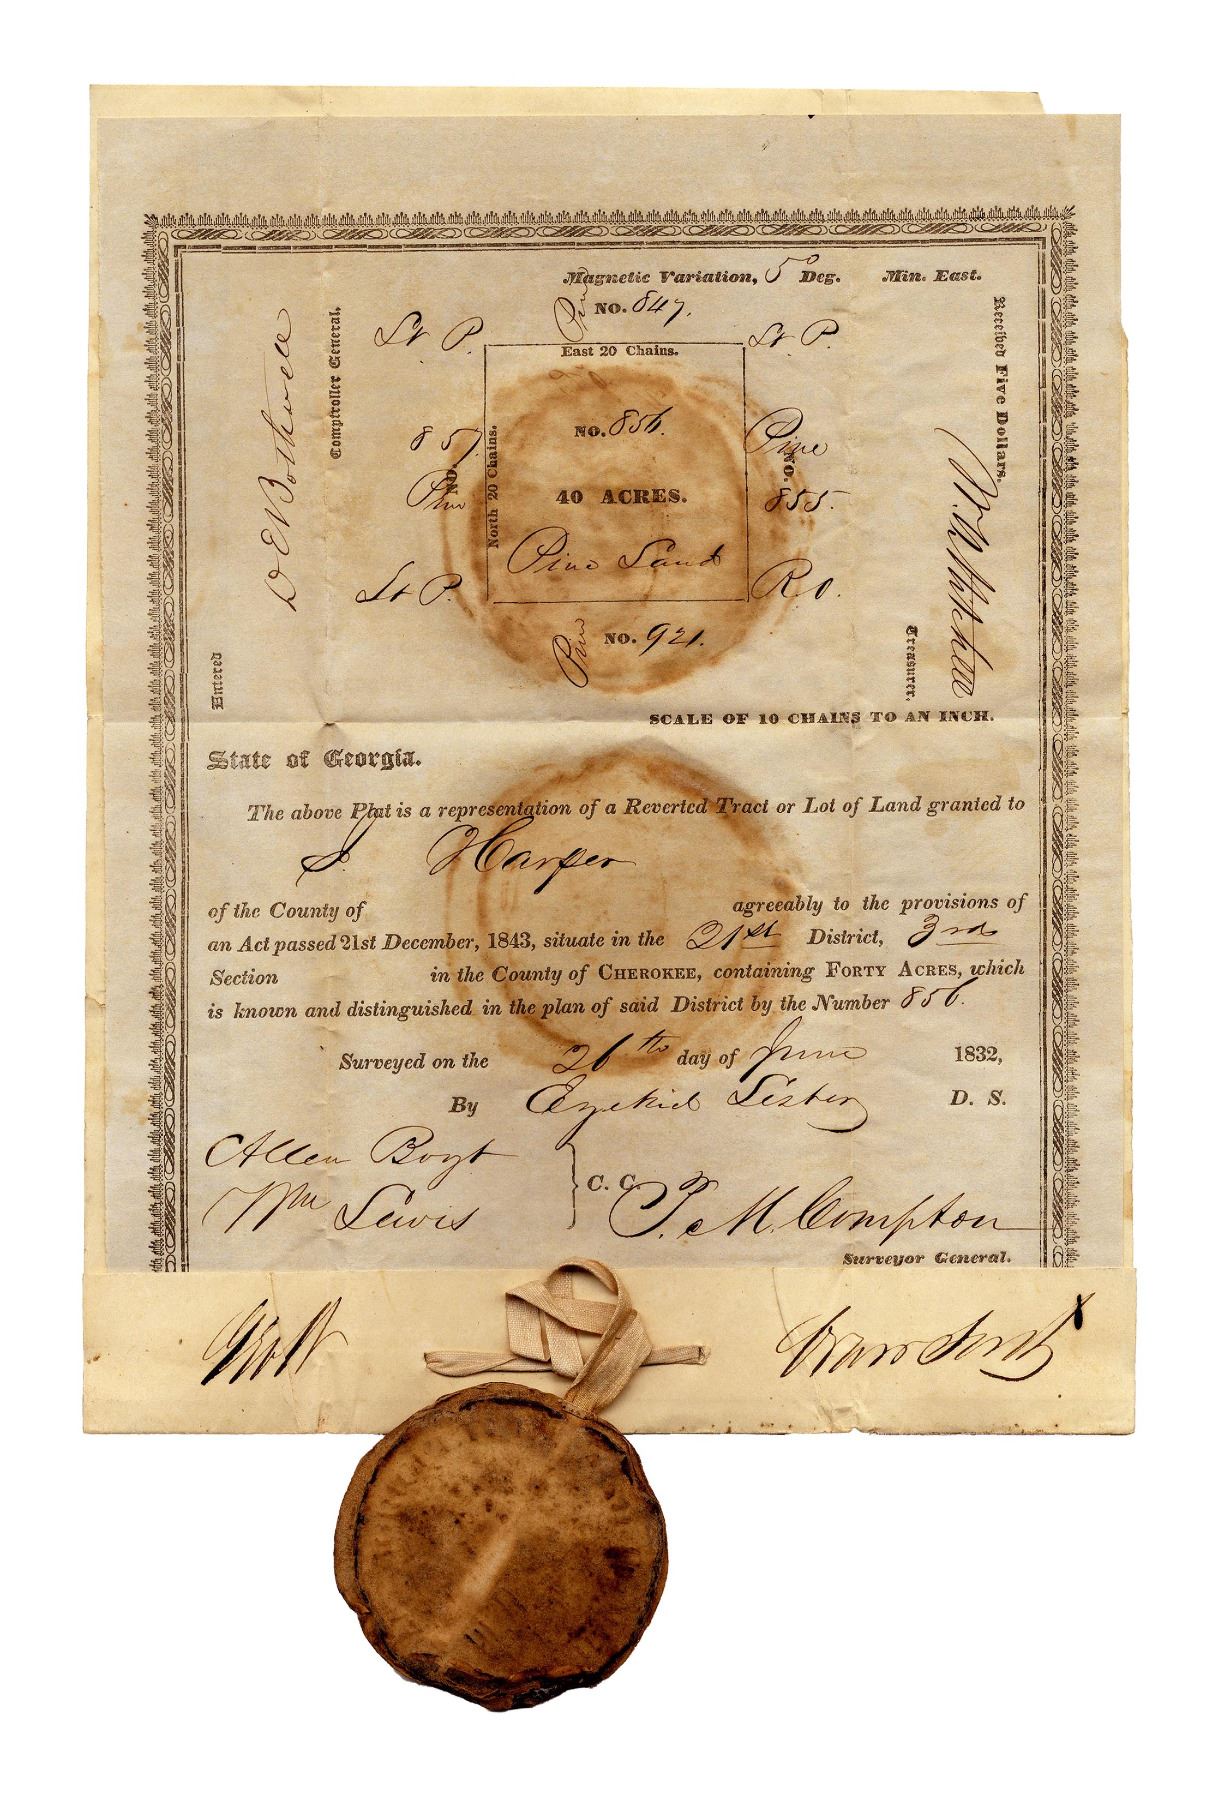 Magnetic Variation, 5° Deg. Min. East.
Pine
NO. 847.
St P.
St. P.
East 20 Chains.
Received Five Dollars.
Treasurer.
D E Bothwell
Comptroller General.
Entered
857.
NO.
Pine
North 20 Chains.
NO. 856.
40 ACRES.
Pine Land
Pine
NO.
855.
St P.
R. O.
Pine
NO. 921.
SCALE OF 10 CHAINS TO AN INCH.
State of Georgia.
The above Plat is a representation of a Reverted Tract or Lot of Land granted to
Harper
of the County of agreeably to the provisions of
an Act passed 21st December, 1843, situate in the 21st District, 3rd
Section in the County of CHEROKEE, containing FORTY ACRES, which
is known and distinguished in the plan of said District by the Number 856.
Surveyed on the 26th day of June 1832,
By Ezekiel Lester D. S.
Allen Boyt
Wm Lewis
C. C.
T. M. Compton
Surveyor General.
Geo W Crawford